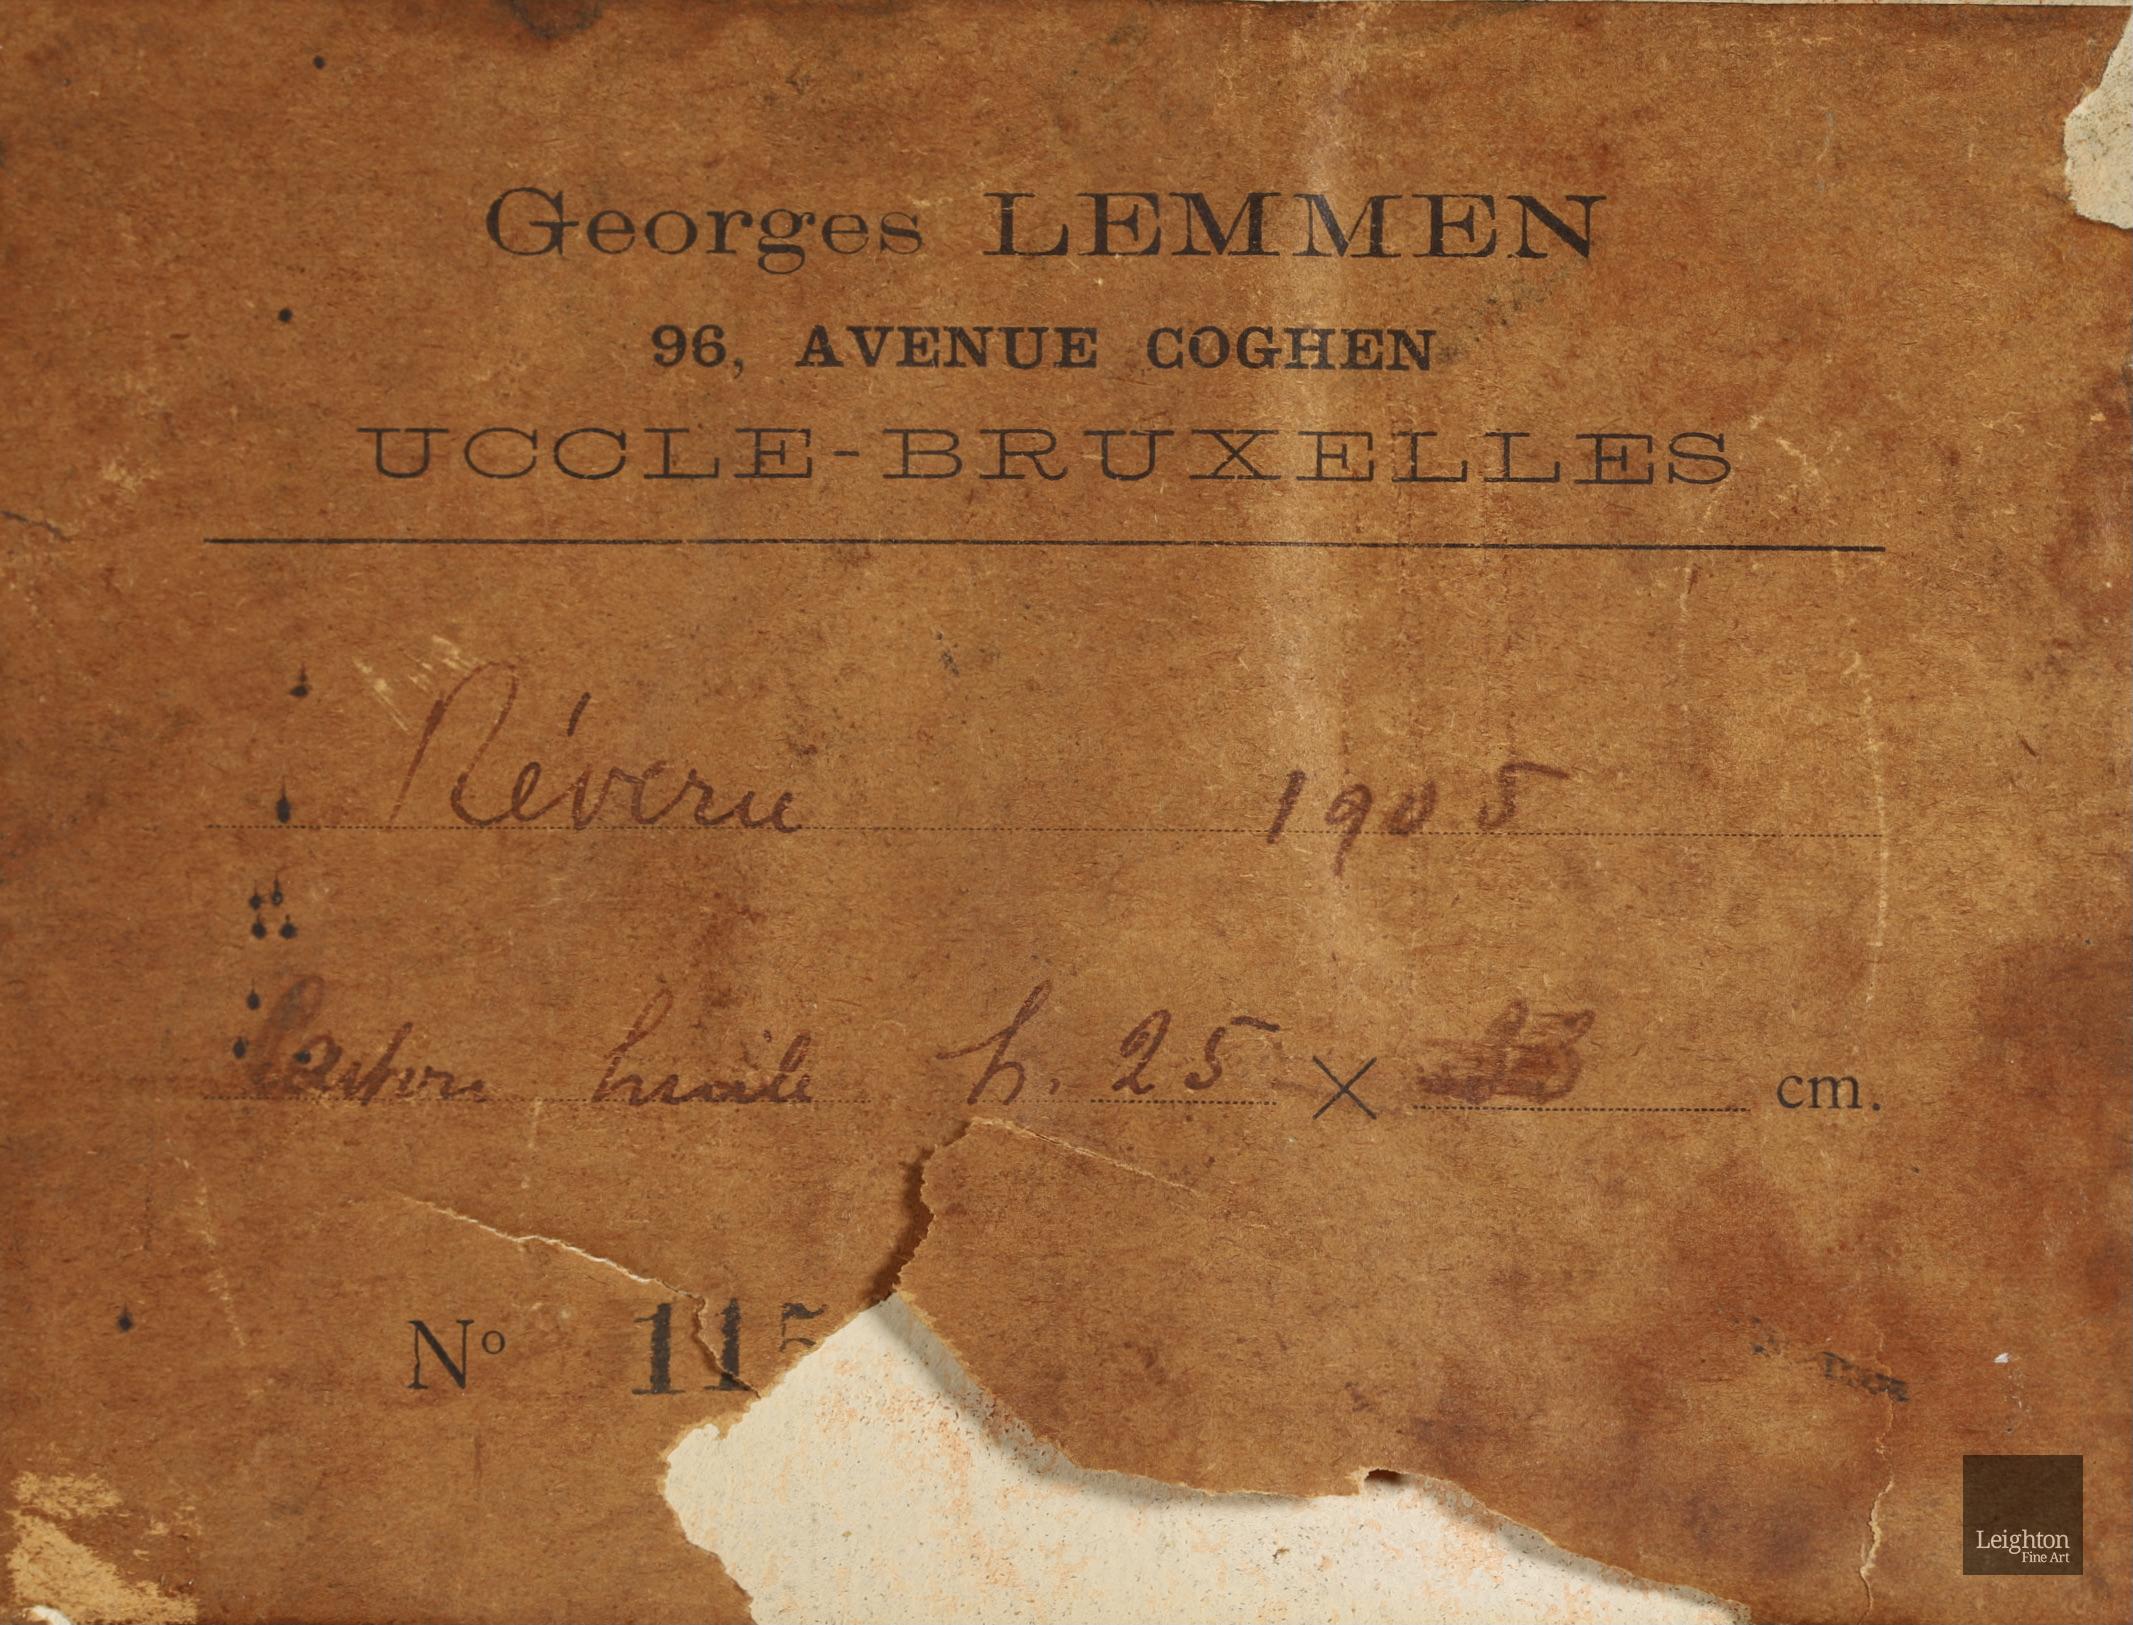 Georges LEMMEN
96, AVENUE COGHEN
UCCLE-BRUXELLES
Réverie 1905
Carton huile h. 25 × cm.
Nº 115
Leighton
Fine Art